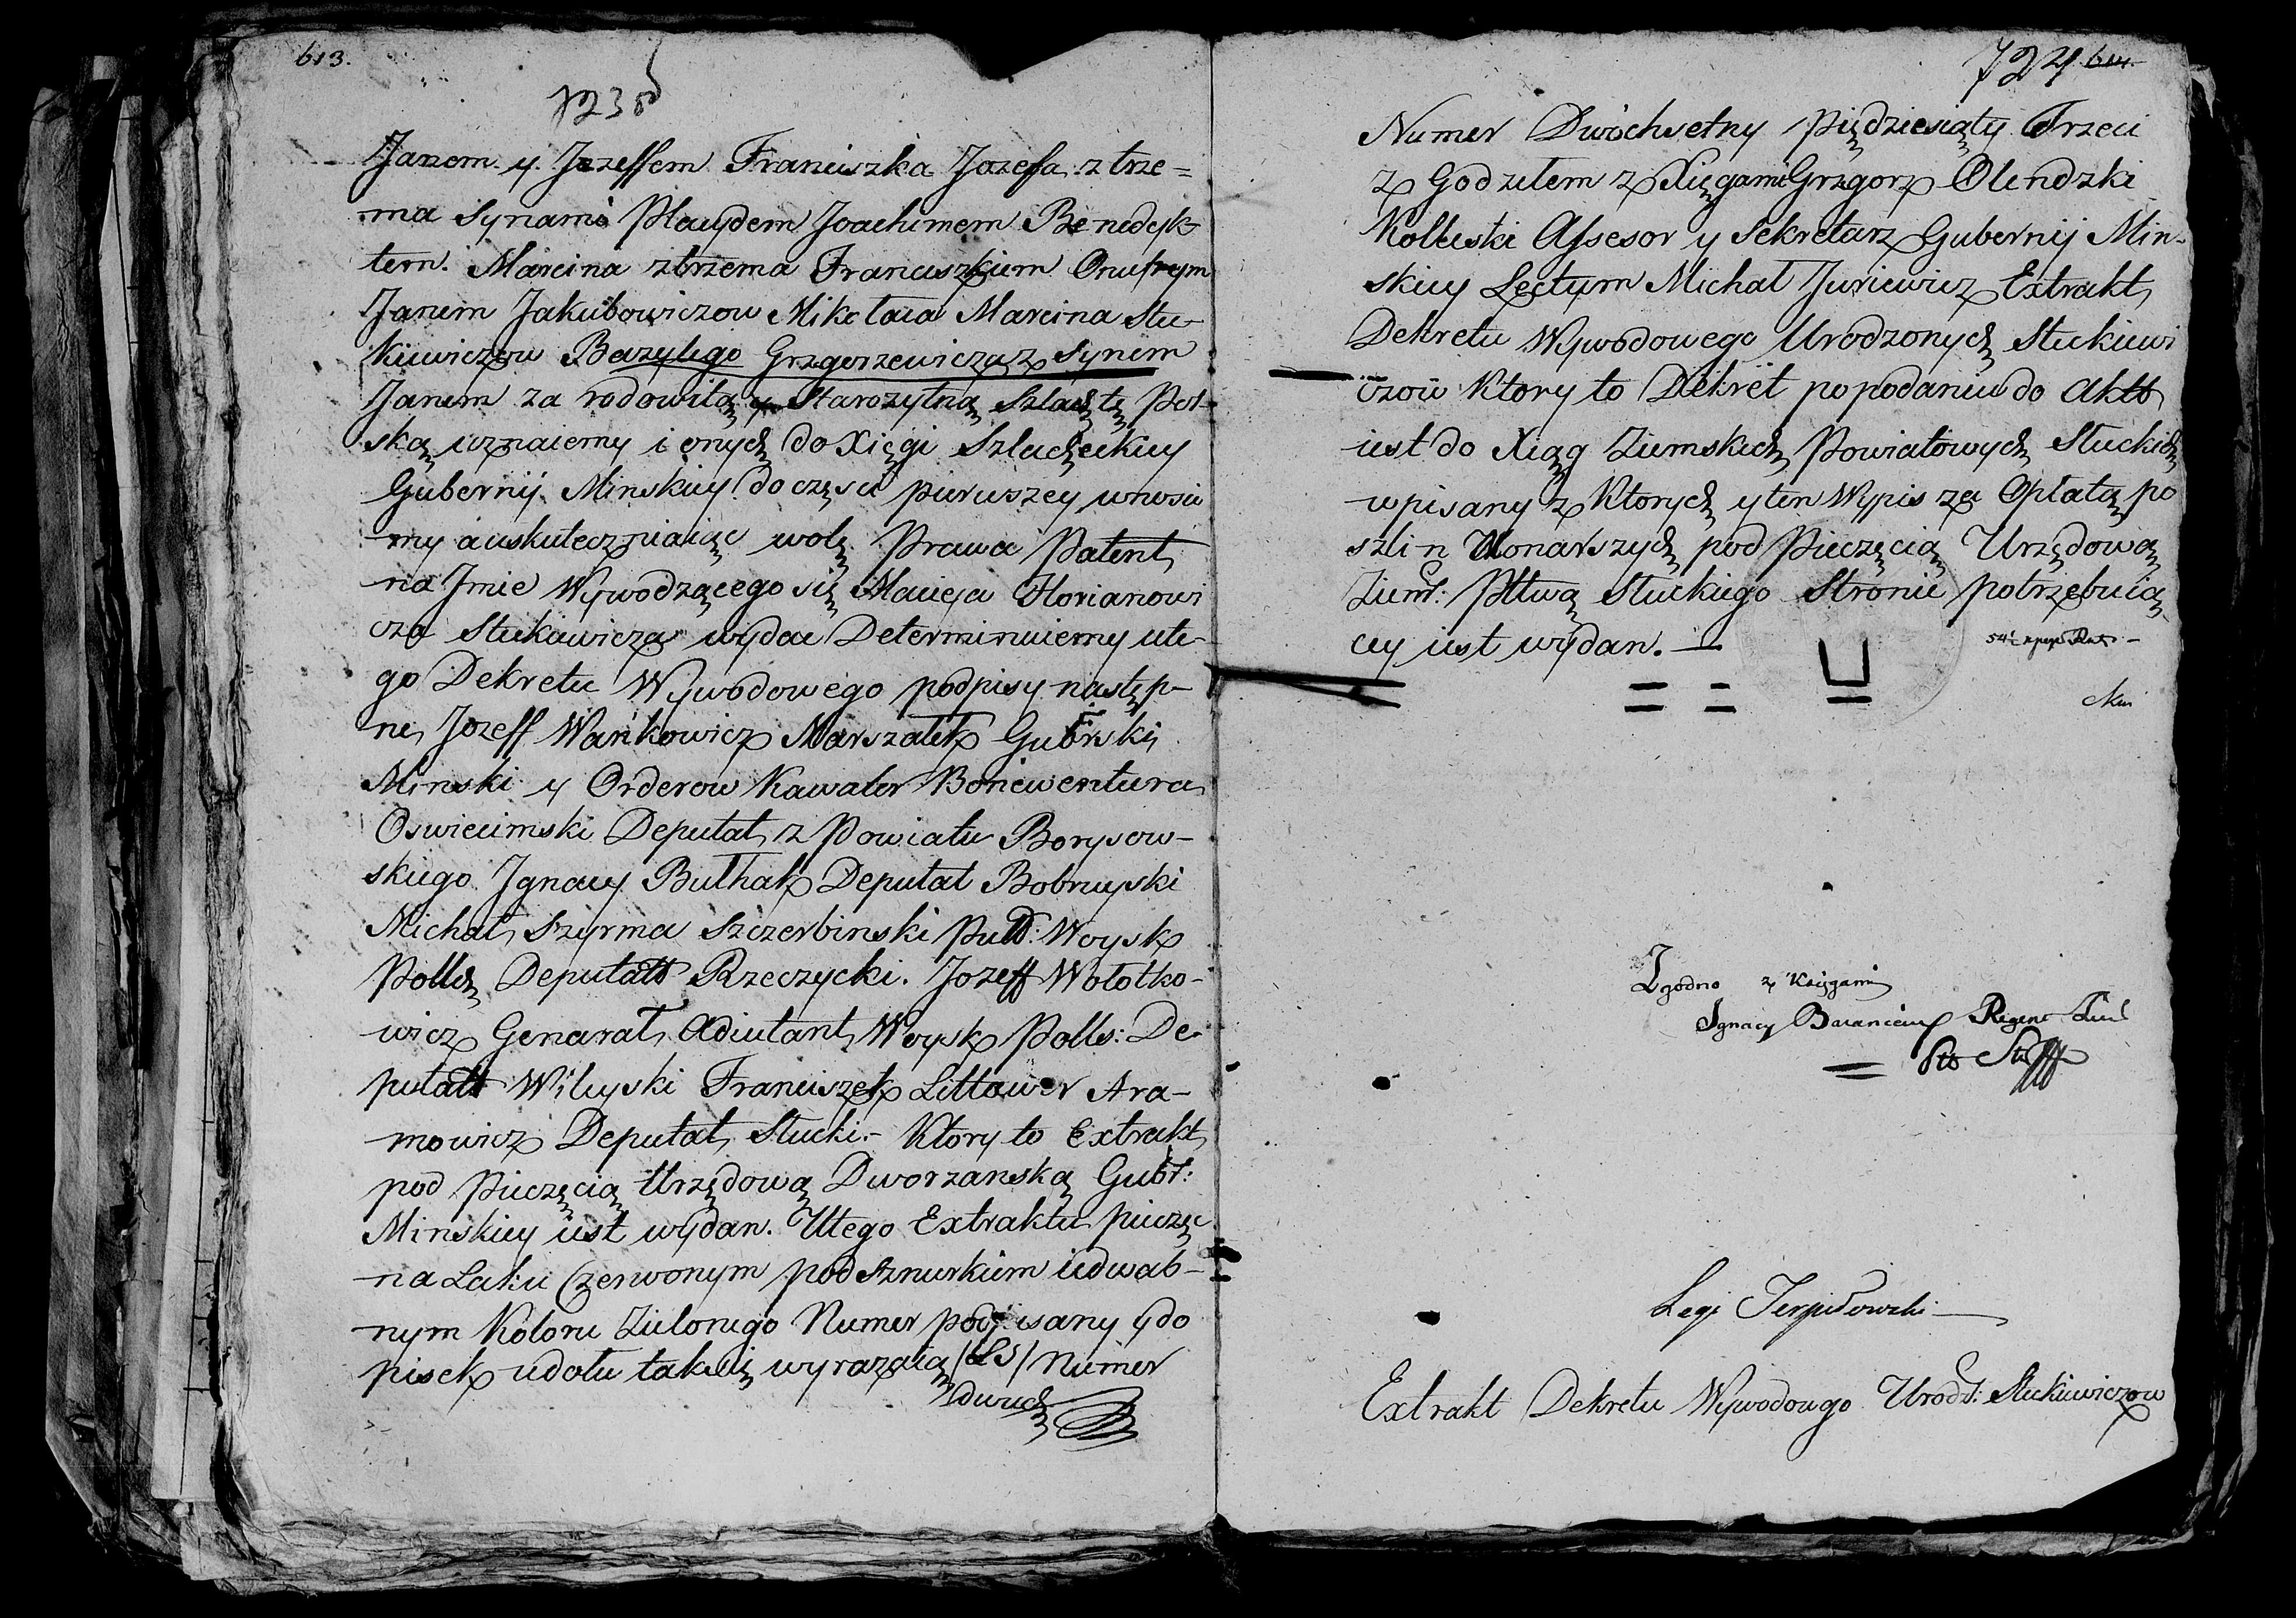 613.
723
Janem y Jozeffem Franciszka Jozefa z trze=
ma Synami Placydem Joachimem Benedyk-
tem. Marcina z trzema Franciszkiem Onufrym
Janem Jakubowiczow Mikołaia Marcina Stu-
kiewiczow Bazylego Grzegorzewicza z Synem
Janem za rodowitą y Starożytną Szlachtę Pol-
ską uznaiemy i onych do Xięgi Szlacheckiey
Gubernij Minskiey do częsci pierwszey wnosie
my a uskuteczniaiąc wolę Prawa Patent
na Jmie Wywodzącego się Macieja Florianowi
cza Stukiewicza wydac Determinuiemy u te-
go Dekretu Wywodowego podpisy następ-
ne, Jozeff Wańkowicz Marszałek Gubrski
Minski y Orderow Kawaler Bonawentura
Oswiecimski Deputat z Powiatu Borysow-
skiego Jgnacy Bułhak Deputat Bobruyski
Michał Szyrma Szczerbinski Woysk
Polls Deputatt Rzeczycki. Jozeff Wołotko-
wicz Generał Adiutant Woysk Polls: De-
putatt Wileyski Franciszek Littawor Ara-
mowicz Deputat Słucki.- Ktory to Extrakt
pod Pieczęcią Urzędową Dworzanską Gubr:
Minskiey iest wydan. U tego Extraktu pieczęc
na Laku Czerwonym pod Sznurkiem iedwab-
nym Koloru Zielonego Numer podpisany y do
pisek u dołu taki się wyrażaią /LS/ Numer
dwuch
724 614.
Numer Dwóchsetny Pięćdziesiąty Trzeci
z Godziłem z Xięgami Grzegorz Olendzki
Kolleski Assesor y Sekretarz Gubernij Min-
skiey Lectum Michał Juriewicz Extrakt
Dekretu Wywodowego Urodzonych Stukiewi
czow ktory to Dekret po podaniu do Aktt
iest do Xiąg Ziemskich Powiatowych Słuckich
wpisany z ktorych y ten Wypis za Opłatą po
szlin Monarszych pod Pieczęcią Urzędową
Ziems: Pttwą Słuckiego Stronie potrzebuią
cey iest wydan. –
Zgodno z Księgami
Ignacy Regent
Legi Terpiłowski
Extrakt Dekretu Wywodowego Urodz: Stukiewiczow